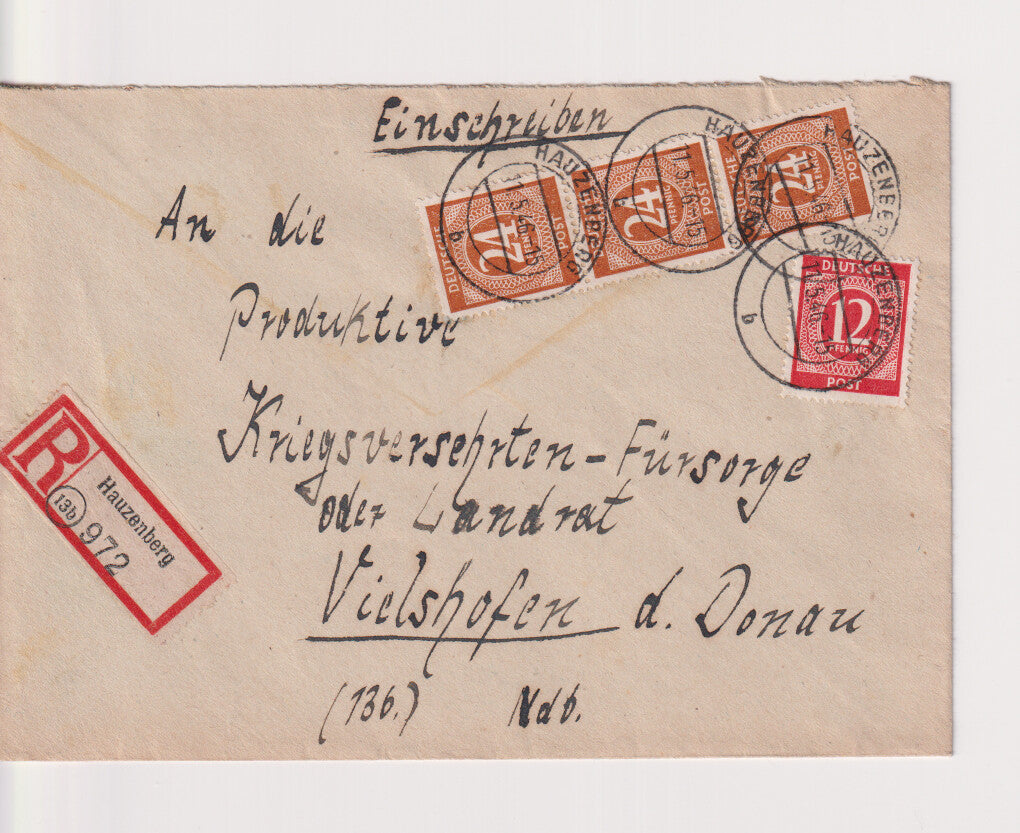 Einschreiben
An die
Produktive
Kriegsversehrten-Fürsorge
oder Landrat
Vielshofen d. Donau
(13b.) Ndb.
R
Hauzenberg
(13b) 972
DEUTSCHE
24
PFENNIG
POST
HAUZENBERG
11.5.46.-15
a
24
PFENNIG
POST
HAUZENBERG
DEUTSCHE
24
POST
HAUZENBERG
DEUTSCHE
12
PFENNIG
POST
HAUZENBERG
b